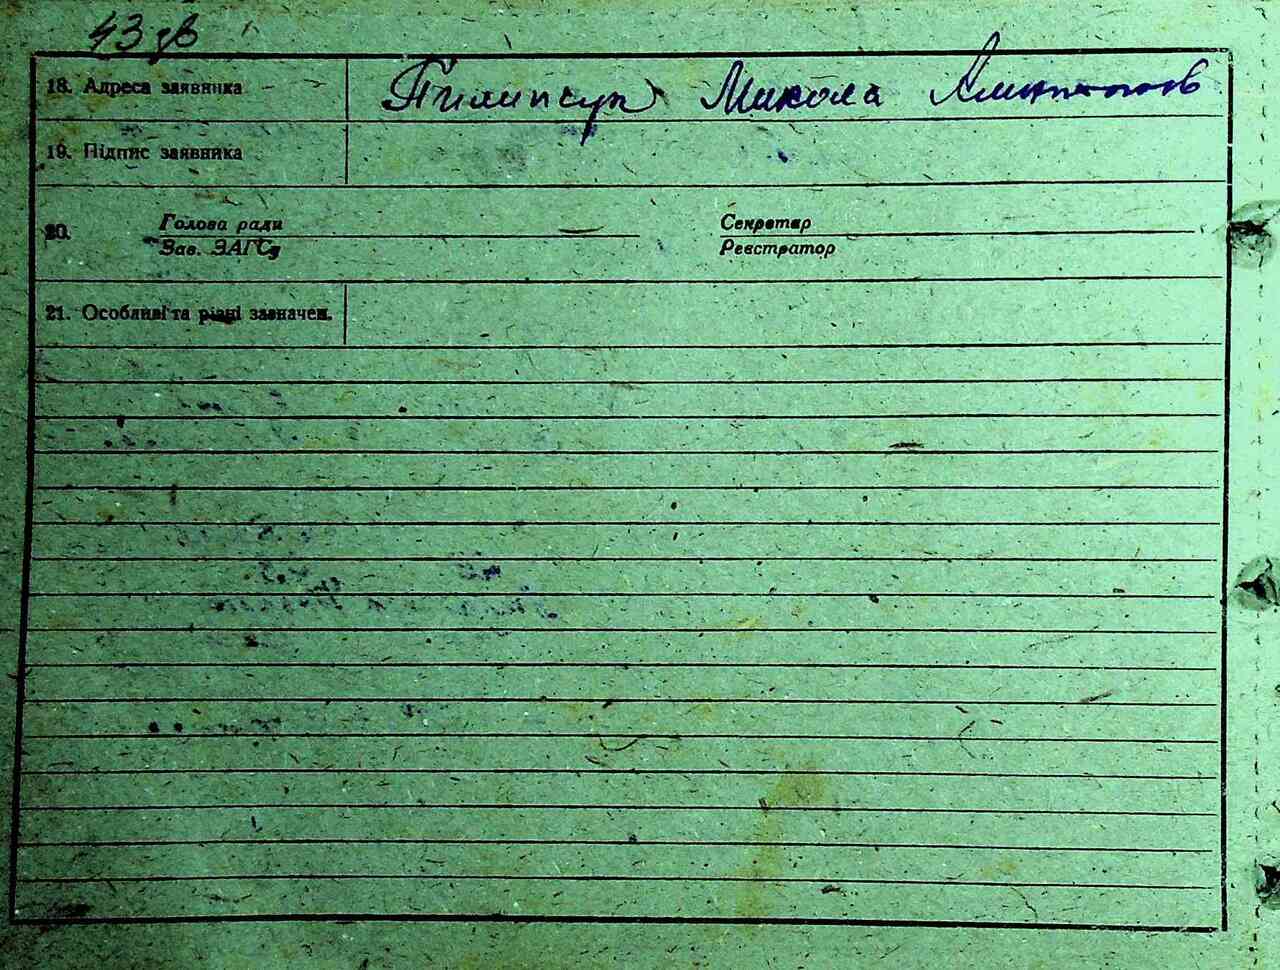 43 зв
18. Адреса заявника Пилипчук Микола
19. Підпис заявника
20. Голова ради Секретар
Зав. ЗАГСу Реєстратор
21. Особливі та різні зазначен.